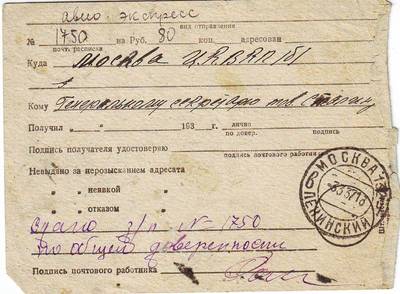 авио экспресс
вид отправления
№ 1750 на Руб. 80 коп. адресован
почт. расписки
Куда Москва ЦК ВКП(б)
Кому Генеральному секретарю тов Сталину
Получил 193 г. лично
по довер. подпись
Подпись получателя удостоверяю
подпись почтового работника
Невыдано за нерозысканием адресата
" неявкой
" отказом
Здано з/п № 1750
по общей доверенности
Подпись почтового работника
МОСКВА
ЛЕНИНСКИЙ